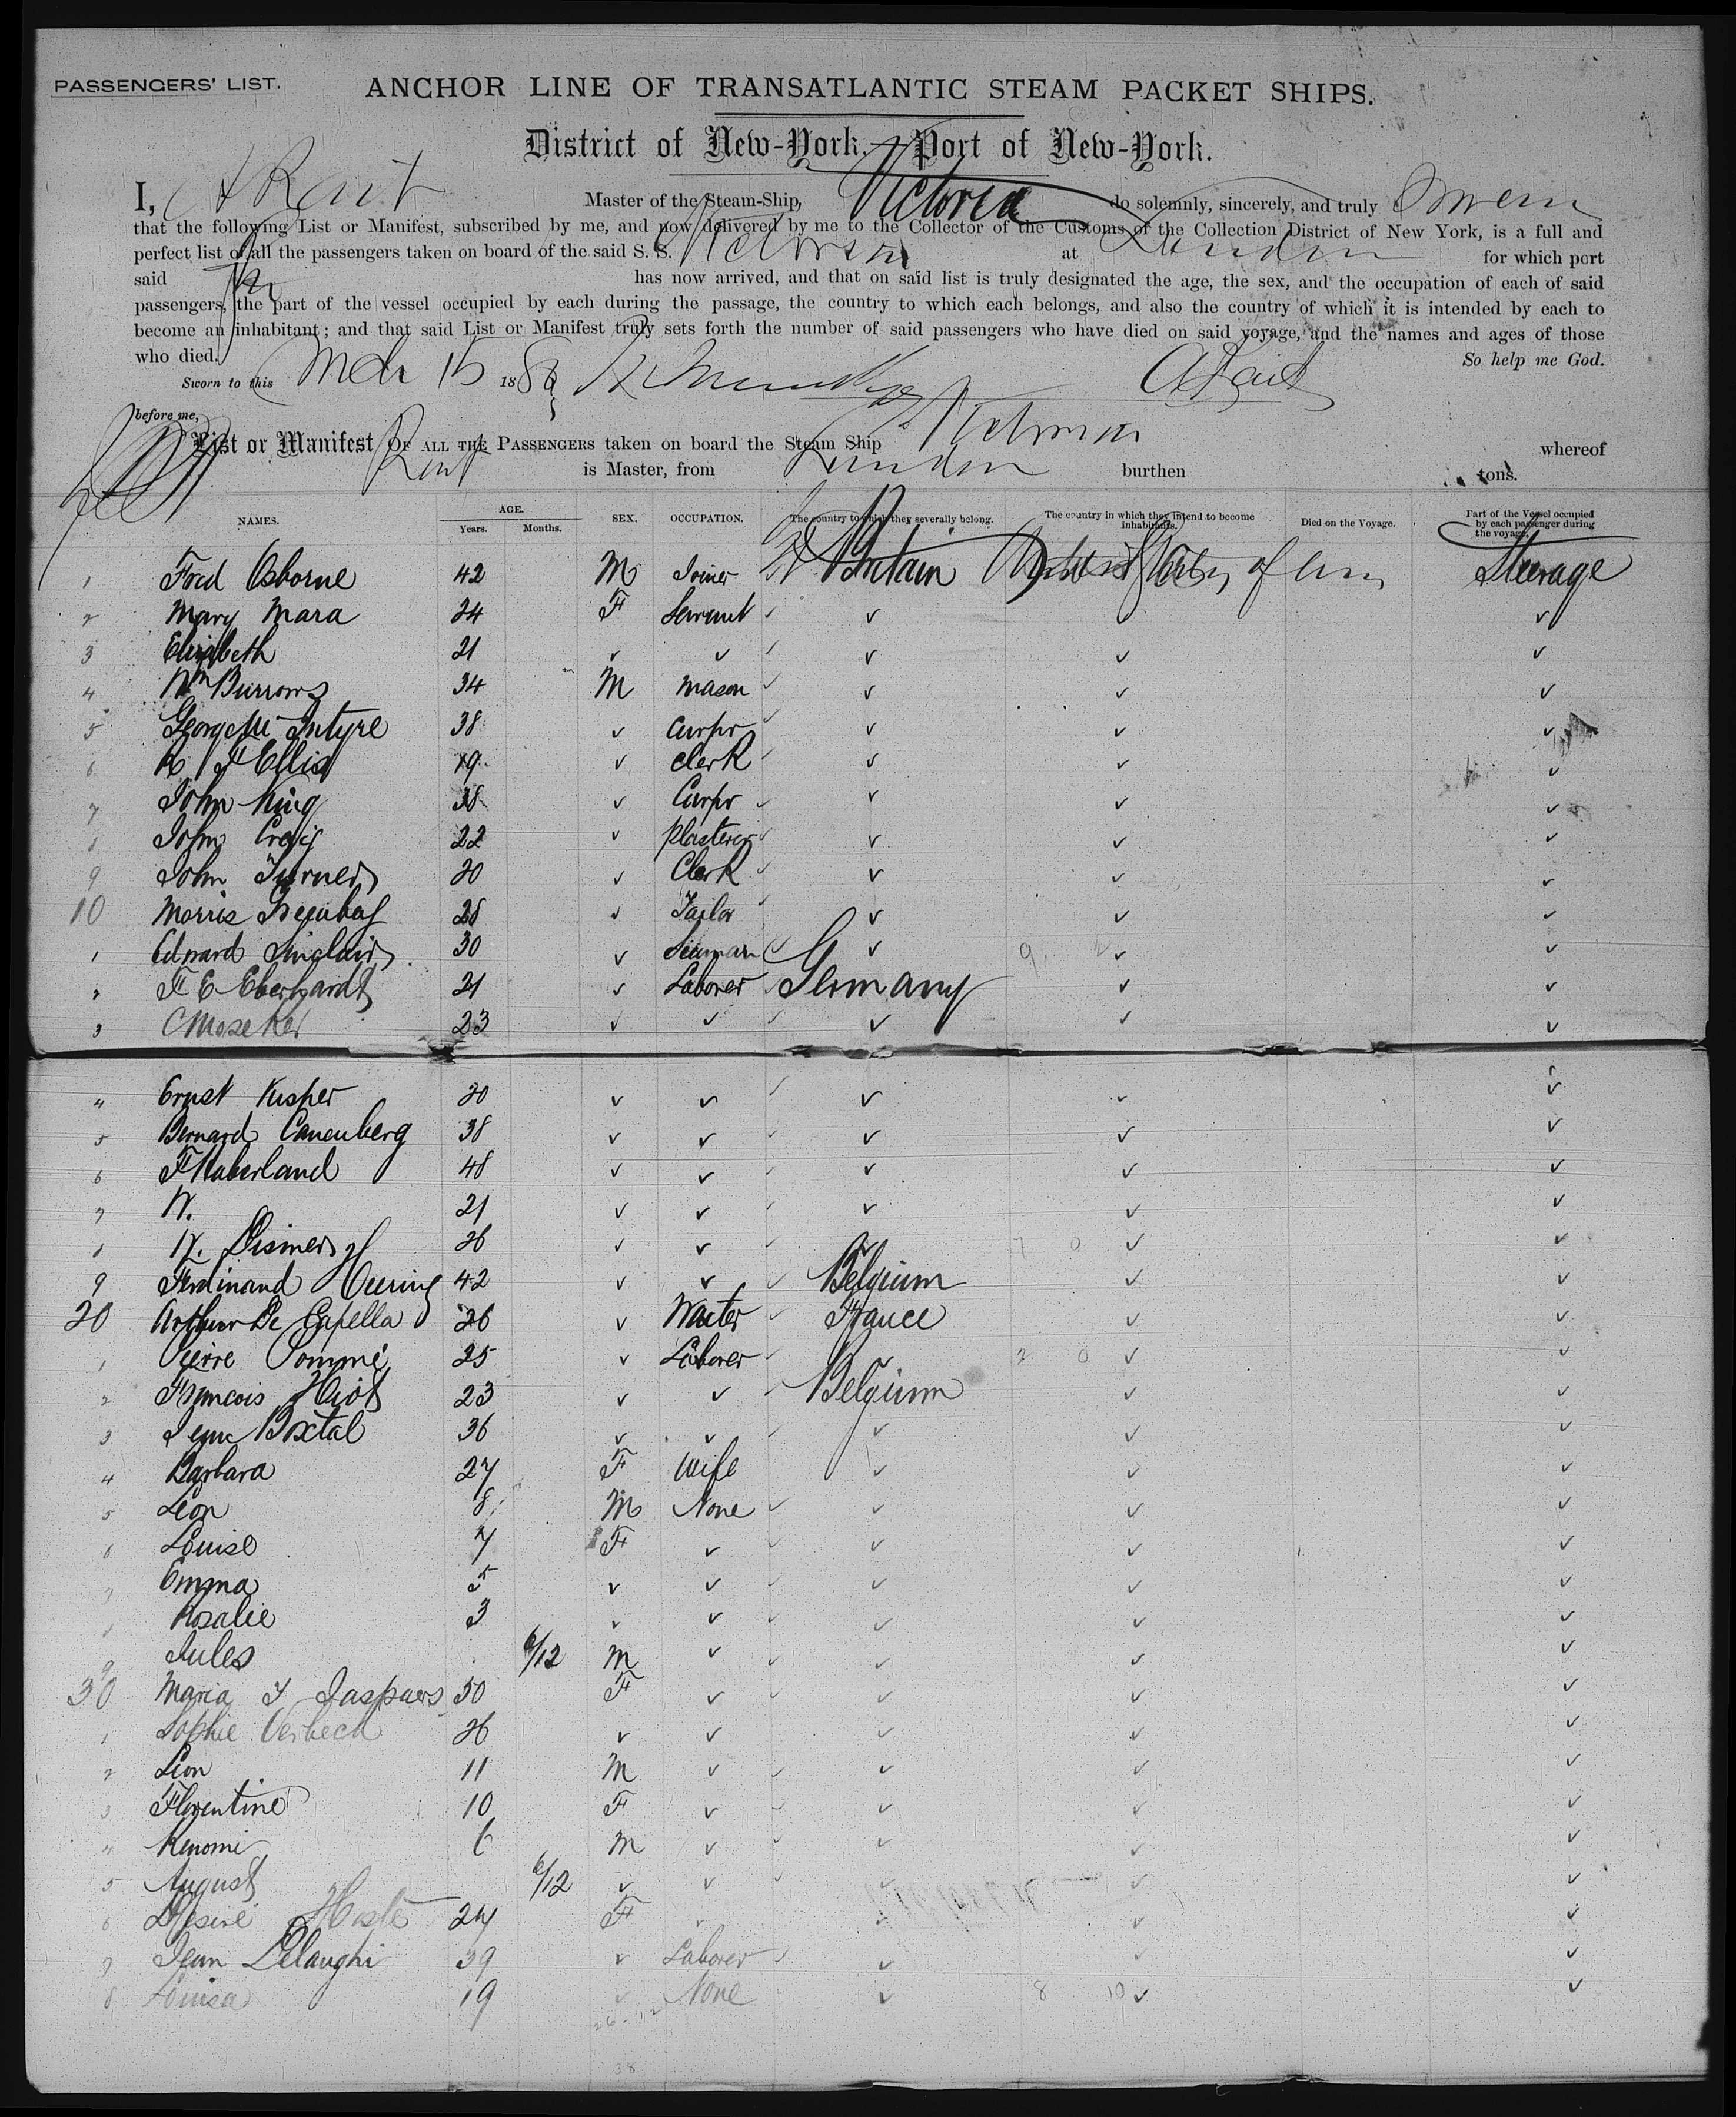 PASSENGERS' LIST.
ANCHOR LINE OF TRANSATLANTIC STEAM PACKET SHIPS.
District of New-York.—Port of New-York.
I, A Rait Master of the Steam-Ship, Victoria do solemnly, sincerely, and truly Swear
that the following List or Manifest, subscribed by me, and now delivered by me to the Collector of the Customs of the Collection District of New York, is a full and
perfect list of all the passengers taken on board of the said S. S. Victoria at London for which port
said has now arrived, and that on said list is truly designated the age, the sex, and the occupation of each of said
passengers, the part of the vessel occupied by each during the passage, the country to which each belongs, and also the country of which it is intended by each to
become an inhabitant; and that said List or Manifest truly sets forth the number of said passengers who have died on said voyage, and the names and ages of those
who died. So help me God.
Sworn to this Mch 15 188 A Rait
before me,
List or Manifest OF ALL THE PASSENGERS taken on board the Steam Ship Victoria whereof
Rait is Master, from London burthen tons.
NAMES. AGE. Years. Months. SEX. OCCUPATION. The country to which they severally belong. The country in which they intend to become inhabitants. Died on the Voyage. Part of the Vessel occupied by each passenger during the voyage.
1 Fred Osborne 42 M Joiner Gt Britain Steerage
2 Mary Mara 24 F Servant ✓ ✓ ✓
3 Elizabeth 21 ✓ ✓ ✓ ✓ ✓
4 Wm Burrows 34 M Mason ✓ ✓ ✓
5 George McIntyre 38 ✓ Carpr ✓ ✓ ✓
6 Ellis 19 ✓ Clerk ✓ ✓ ✓
7 John King 38 ✓ Carpr ✓ ✓ ✓
8 John Craig 22 ✓ Plasterer ✓ ✓ ✓
9 John Turner 20 ✓ Clerk ✓ ✓ ✓
10 Morris 28 ✓ Tailor ✓ ✓ ✓
1 Edward Sinclair 30 ✓ Seaman ✓ ✓ ✓
2 F E Eberhardt 21 ✓ Laborer Germany ✓ ✓
3 C Mozeker 23 ✓ ✓ ✓ ✓ ✓
4 Ernst Kusper 20 ✓ ✓ ✓ ✓ ✓
5 Bernard Canenberg 38 ✓ ✓ ✓ ✓ ✓
6 F Haberland 48 ✓ ✓ ✓ ✓ ✓
7 W. 21 ✓ ✓ ✓ ✓ ✓
8 W. 26 ✓ ✓ ✓ ✓ ✓
9 Ferdinand 42 ✓ ✓ Belgium ✓ ✓
20 Arthur De Capella 26 ✓ Waiter France ✓ ✓
1 Pierre Pommé 25 ✓ Laborer ✓ ✓ ✓
2 Francois 23 ✓ ✓ Belgium ✓ ✓
3 Jean Boxtal 36 ✓ ✓ ✓ ✓ ✓
4 Barbara 27 F Wife ✓ ✓ ✓
5 Leon 8 M None ✓ ✓ ✓
6 Louise 7 F ✓ ✓ ✓ ✓
7 Emma 5 ✓ ✓ ✓ ✓ ✓
8 Rosalie 3 ✓ ✓ ✓ ✓ ✓
9 Jules 6/12 M ✓ ✓ ✓ ✓
30 Maria Jaspaers 50 F ✓ ✓ ✓ ✓
1 Sophie Verbeck 26 ✓ ✓ ✓ ✓ ✓
2 Leon 11 M ✓ ✓ ✓ ✓
3 Florentine 10 F ✓ ✓ ✓ ✓
4 Renomi 6 M ✓ ✓ ✓ ✓
5 August 6/12 ✓ ✓ ✓ ✓ ✓
6 Desiré Hoste 27 F ✓ ✓ ✓ ✓
7 Jean Delaughi 39 ✓ Laborer ✓ ✓ ✓
8 Louisa 19 ✓ None ✓ ✓ ✓
26-12
38